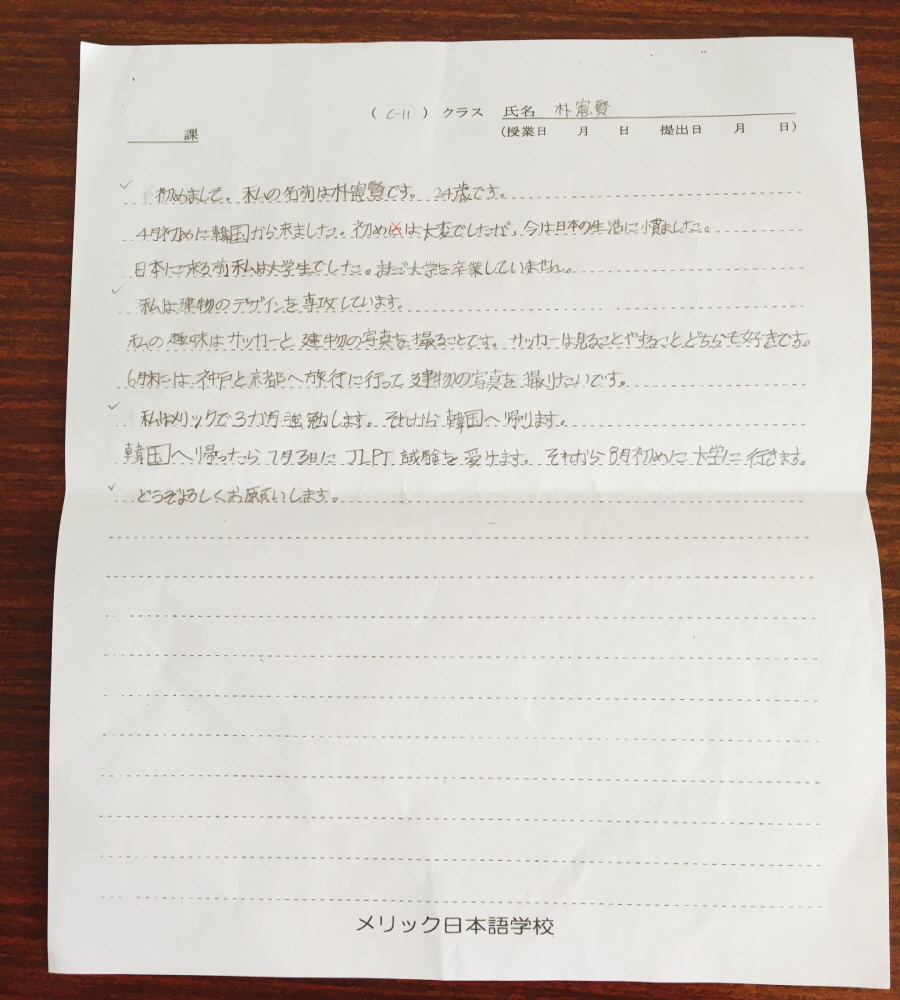 （ C-11 ） クラス 氏名 朴憲賢
課 （授業日 月 日 提出日 月 日）
初めまして。私の名前は朴憲賢です。24歳です。
4月初めに韓国から来ました。初めは大変でしたが、今は日本の生活に慣ました。
日本に来る前私は大学生でした。まだ大学を卒業していません。
私は建物のデザインを専攻しています。
私の趣味はサッカーと建物の写真を撮ることです。サッカーは見ることやすること、どちらも好きです。
6月末には神戸と京都へ旅行に行って建物の写真を撮りたいです。
私はメリックで3か月強勉します。それから韓国へ帰ります。
韓国へ帰ったら7月3日にJLPT試験を受けます。それから8月初めに大学に行きます。
どうぞよろしくお願いします。
メリック日本語学校